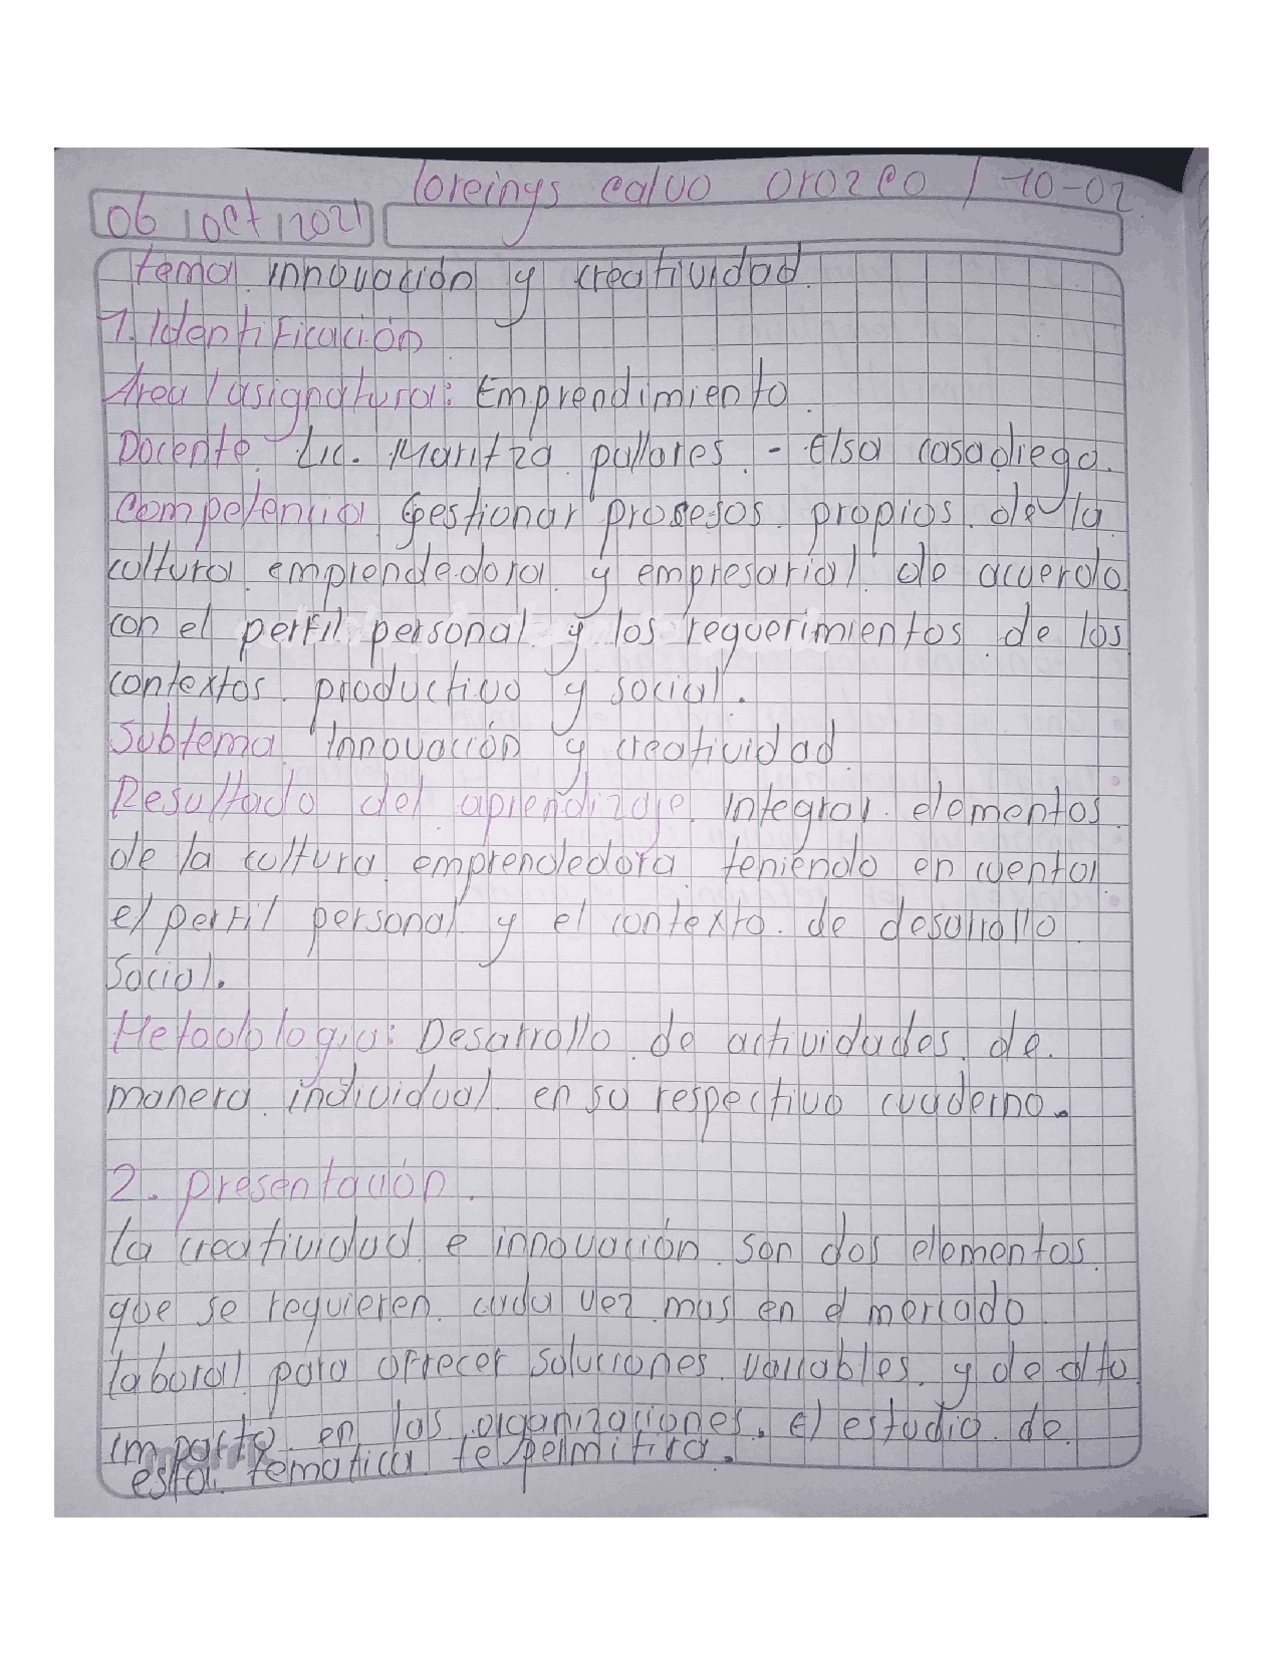 loreings calvo orozco / 10-02
06 | oct | 2021
tema innovación y creatividad.
1. Identificación
Area / asignatura: Emprendimiento.
Docente. Lic. Maritza pallares. - Elsa casadiego.
Competencia Gestionar procesos propios de la
cultura emprendedora y empresarial de acuerdo
con el perfil personal y los requerimientos de los
contextos productivo y social.
Subtema Innovación y creatividad.
Resultado del aprendizaje. Integrar elementos
de la cultura emprendedora teniendo en cuenta
el perfil personal y el contexto de desarrollo
social.
Metodologia: Desarrollo de actividades de
manera individual en su respectivo cuaderno.
2. presentación.
la creatividad e innovación son dos elementos
que se requieren cada vez mas en el mercado
laboral para ofrecer soluciones variables y de alto
impacto en las organizaciones. el estudio de
esta tematica te permitira.